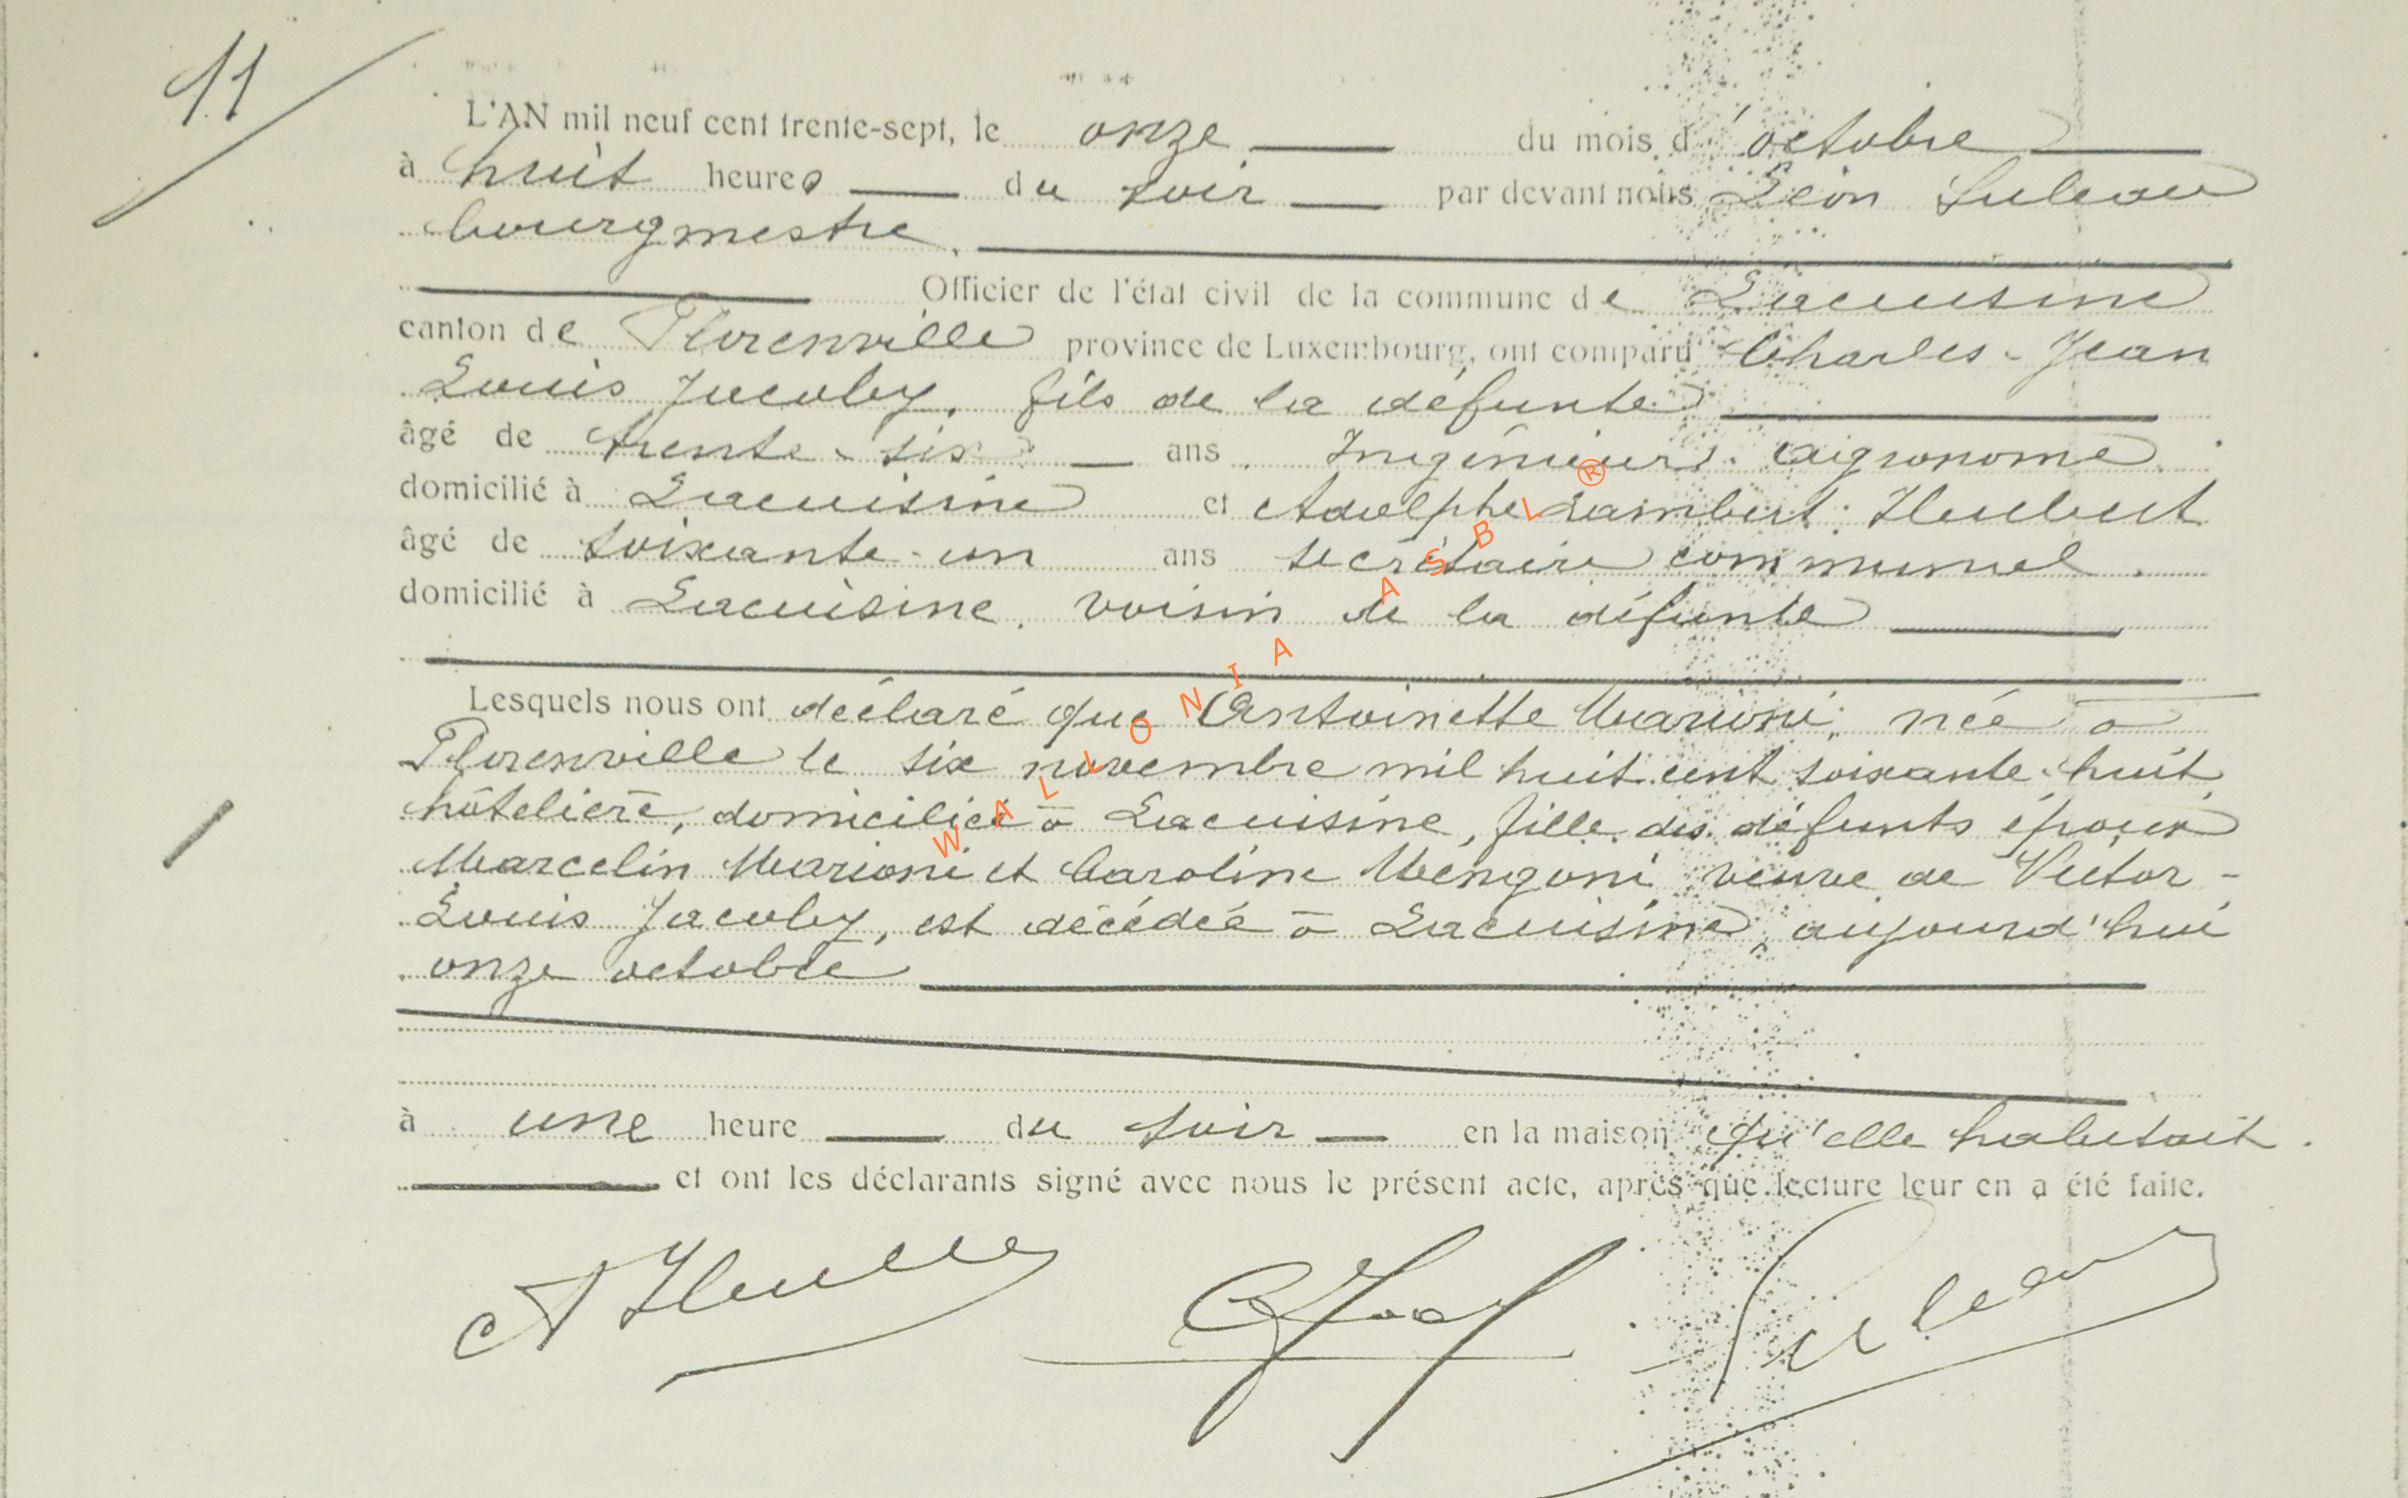 11
L'AN mil neuf cent trente-sept, le onze du mois d'octobre
à huit heures du soir par devant nous Léon Suleau
bourgmestre,
Officier de l'état civil de la commune de Lacuisine
canton de Florenville province de Luxembourg, ont comparu Charles-Jean
Louis Jacoby, fils de la défunte
âgé de trente-six ans, Ingénieur-agronome
domicilié à Lacuisine et Adolphe Lambert Hubert
âgé de soixante-un ans secrétaire communal
domicilié à Lacuisine, voisin de la défunte
Lesquels nous ont déclaré que Antoinette Marioni, née à
Florenville le six novembre mil huit cent soixante-huit,
hôtelière, domiciliée à Lacuisine, fille des défunts époux
Marcelin Marioni et Caroline Mengoni veuve de Victor-
Louis Jacoby, est décédée à Lacuisine, aujourd'hui
onze octobre
à une heure du soir en la maison qu'elle habitait.
et ont les déclarants signé avec nous le présent acte, après que lecture leur en a été faite.
WALLONIA ASBL ®